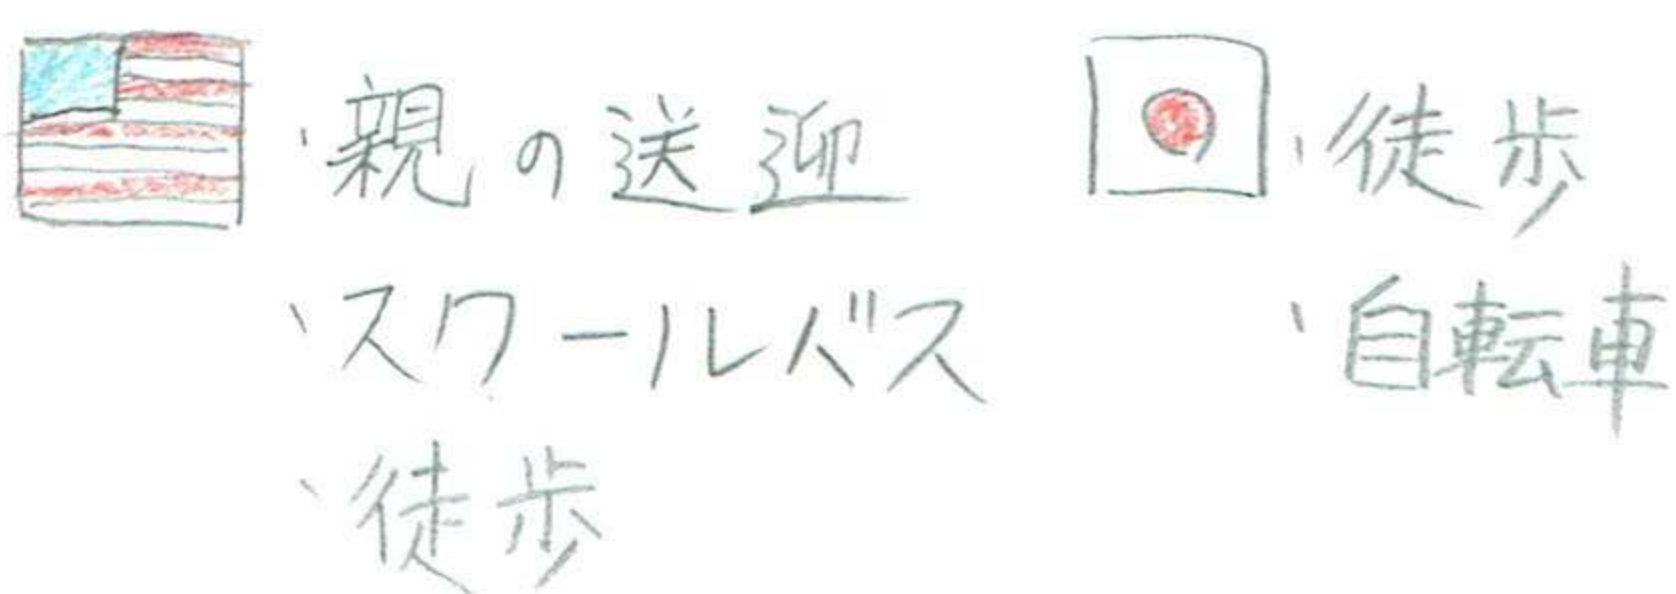 ・親の送迎
・スクールバス
・徒歩
・徒歩
・自転車